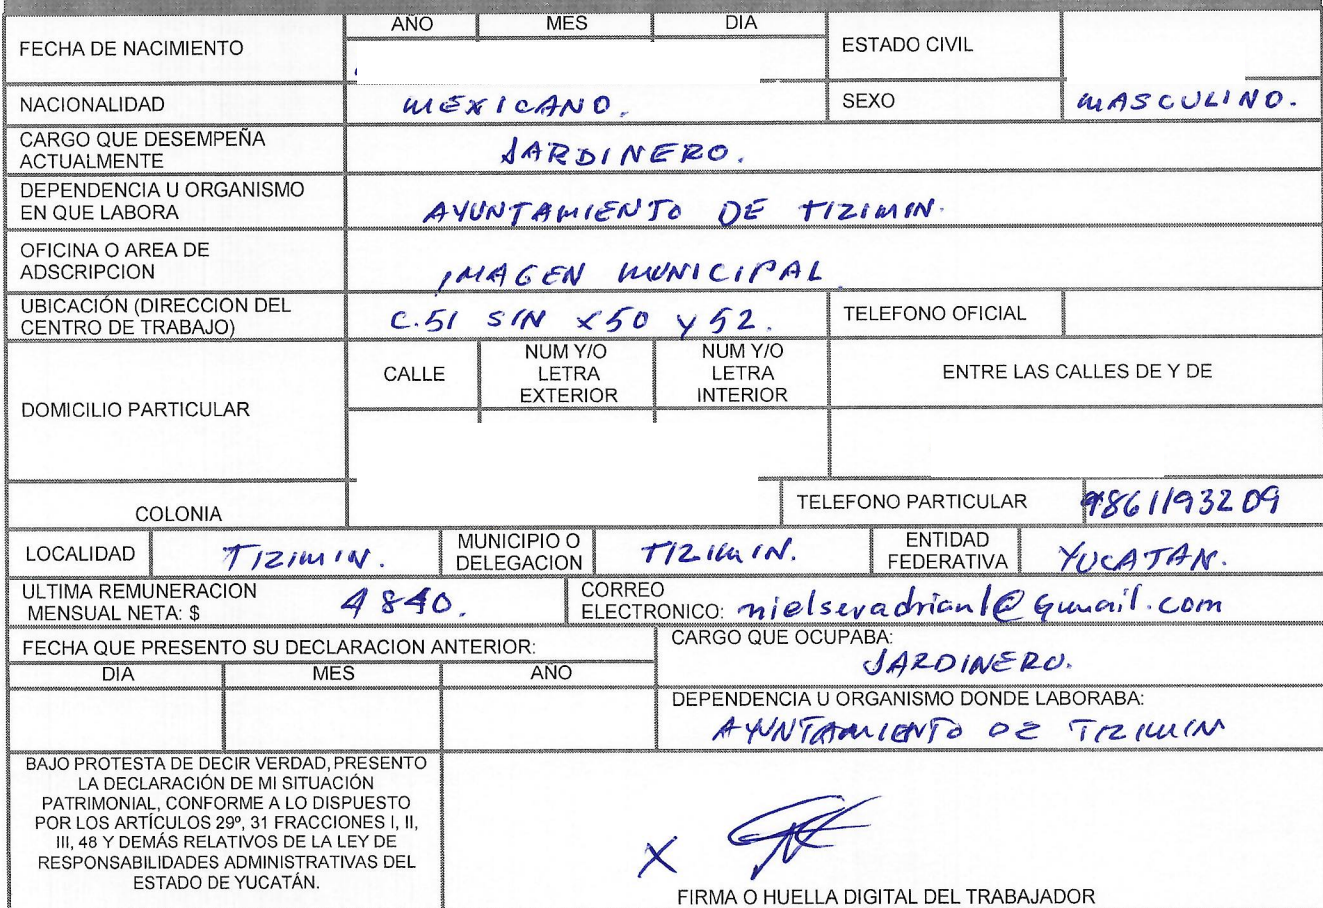 AÑO MES DIA
FECHA DE NACIMIENTO ESTADO CIVIL
NACIONALIDAD MEXICANO. SEXO MASCULINO.
CARGO QUE DESEMPEÑA
ACTUALMENTE JARDINERO.
DEPENDENCIA U ORGANISMO
EN QUE LABORA AYUNTAMIENTO DE TIZIMIN.
OFICINA O AREA DE
ADSCRIPCION IMAGEN MUNICIPAL
UBICACIÓN (DIRECCION DEL
CENTRO DE TRABAJO) C.51 S/N x50 y 52. TELEFONO OFICIAL
DOMICILIO PARTICULAR
CALLE
NUM Y/O
LETRA
EXTERIOR
NUM Y/O
LETRA
INTERIOR
ENTRE LAS CALLES DE Y DE
COLONIA TELEFONO PARTICULAR 9861193209
LOCALIDAD TIZIMIN. MUNICIPIO O
DELEGACION TIZIMIN. ENTIDAD
FEDERATIVA YUCATAN.
ULTIMA REMUNERACION
MENSUAL NETA: $ 4840. CORREO
ELECTRONICO: nielsevadrian1@gmail.com
FECHA QUE PRESENTO SU DECLARACION ANTERIOR:
DIA MES AÑO
CARGO QUE OCUPABA:
JARDINERO.
DEPENDENCIA U ORGANISMO DONDE LABORABA:
AYUNTAMIENTO DE TIZIMIN
BAJO PROTESTA DE DECIR VERDAD, PRESENTO
LA DECLARACIÓN DE MI SITUACIÓN
PATRIMONIAL, CONFORME A LO DISPUESTO
POR LOS ARTÍCULOS 29º, 31 FRACCIONES I, II,
III, 48 Y DEMÁS RELATIVOS DE LA LEY DE
RESPONSABILIDADES ADMINISTRATIVAS DEL
ESTADO DE YUCATÁN.
X
FIRMA O HUELLA DIGITAL DEL TRABAJADOR